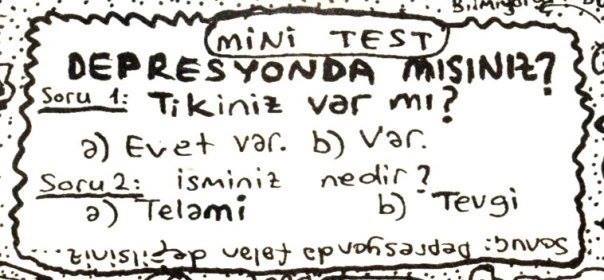 BilMiyoru
MiNi TEST
DEPRESYONDA MISINIZ?
Soru 1: Tikiniz var mı?
a) Evet var. b) Var.
Soru 2: isminiz nedir?
a) Telami b) Tevgi
Sonuç: Depresyonda falan değilsiniz...